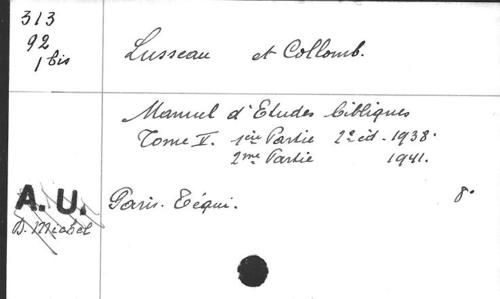 313
92
1 bis
Lusseau et Collomb.
Manuel d'Etudes bibliques
Tome V. 1ère Partie 2e éd. 1938.
2me Partie 1941.
A. U.
D. Michel
Paris. Téqui. 8°